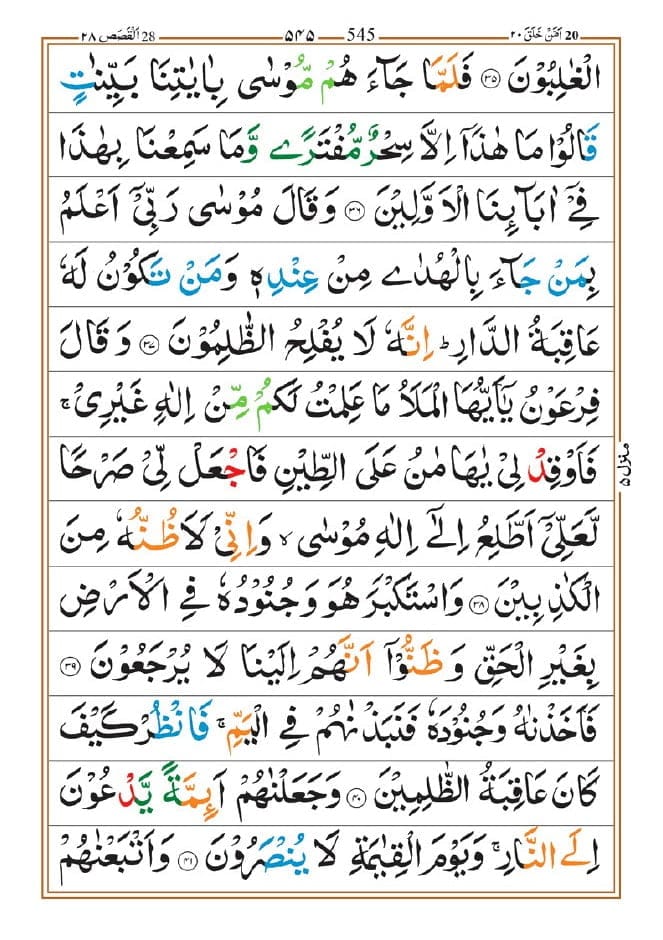 28 اَلْقَصَص ٢٨ ٥٤٥ 545 ٢٠ اَمَّنْ خَلَقَ 20
الْغٰلِبُوْنَ ۝٣٥ فَلَمَّا جَآءَ هُمْ مُّوْسٰى بِاٰيٰتِنَا بَيِّنٰتٍ
قَالُوْا مَا هٰذَاۤ اِلَّا سِحْرٌ مُّفْتَرًے وَّمَا سَمِعْنَا بِهٰذَا
فِيْۤ اٰبَآئِنَا الْاَوَّلِيْنَ ۝٣٦ وَقَالَ مُوْسٰى رَبِّيْۤ اَعْلَمُ
بِمَنْ جَآءَ بِالْهُدٰے مِنْ عِنْدِهٖ وَمَنْ تَكُوْنُ لَهٗ
عَاقِبَةُ الدَّارِ ؕ اِنَّهٗ لَا يُفْلِحُ الظّٰلِمُوْنَ ۝٣٧ وَقَالَ
فِرْعَوْنُ يٰۤاَيُّهَا الْمَلَاُ مَا عَلِمْتُ لَكُمْ مِّنْ اِلٰهٍ غَيْرِيْ ۚ
فَاَوْقِدْ لِيْ يٰهَامٰنُ عَلَى الطِّيْنِ فَاجْعَلْ لِّيْ صَرْحًا
لَّعَلِّيْۤ اَطَّلِعُ اِلٰٓے اِلٰهِ مُوْسٰى ۙ وَاِنِّيْ لَاَظُنُّهٗ مِنَ
الْكٰذِبِيْنَ ۝٣٨ وَاسْتَكْبَرَ هُوَ وَجُنُوْدُهٗ فِي الْاَرْضِ
بِغَيْرِ الْحَقِّ وَظَنُّوْۤا اَنَّهُمْ اِلَيْنَا لَا يُرْجَعُوْنَ ۝٣٩
فَاَخَذْنٰهُ وَجُنُوْدَهٗ فَنَبَذْنٰهُمْ فِي الْيَمِّ ۚ فَانْظُرْ كَيْفَ
كَانَ عَاقِبَةُ الظّٰلِمِيْنَ ۝٤٠ وَجَعَلْنٰهُمْ اَئِمَّةً يَّدْعُوْنَ
اِلَے النَّارِ ۚ وَيَوْمَ الْقِيٰمَةِ لَا يُنْصَرُوْنَ ۝٤١ وَاَتْبَعْنٰهُمْ
منزل ٥